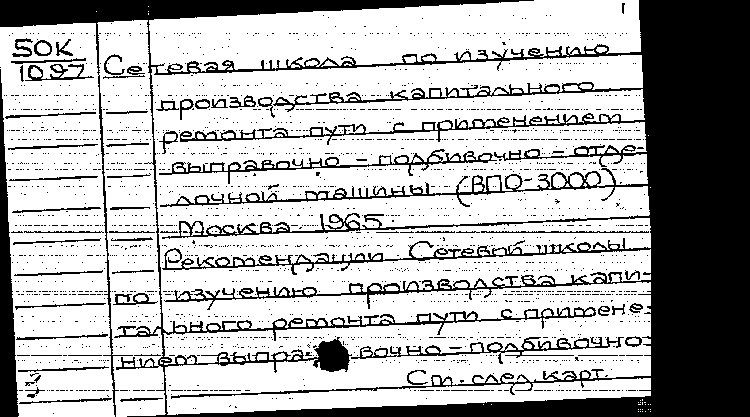 50К
1097
Сетевая школа по изучению
производства капитального
ремонта пути с применением
выправочно-подбивочно-отде-
лочной машины (ВПО-3000)
Москва 1965.
Рекомендации Сетевой школы
по изучению производства капи-
тального ремонта пути с примене-
нием выпра-вочно-подбивочно-
См. след. карт.